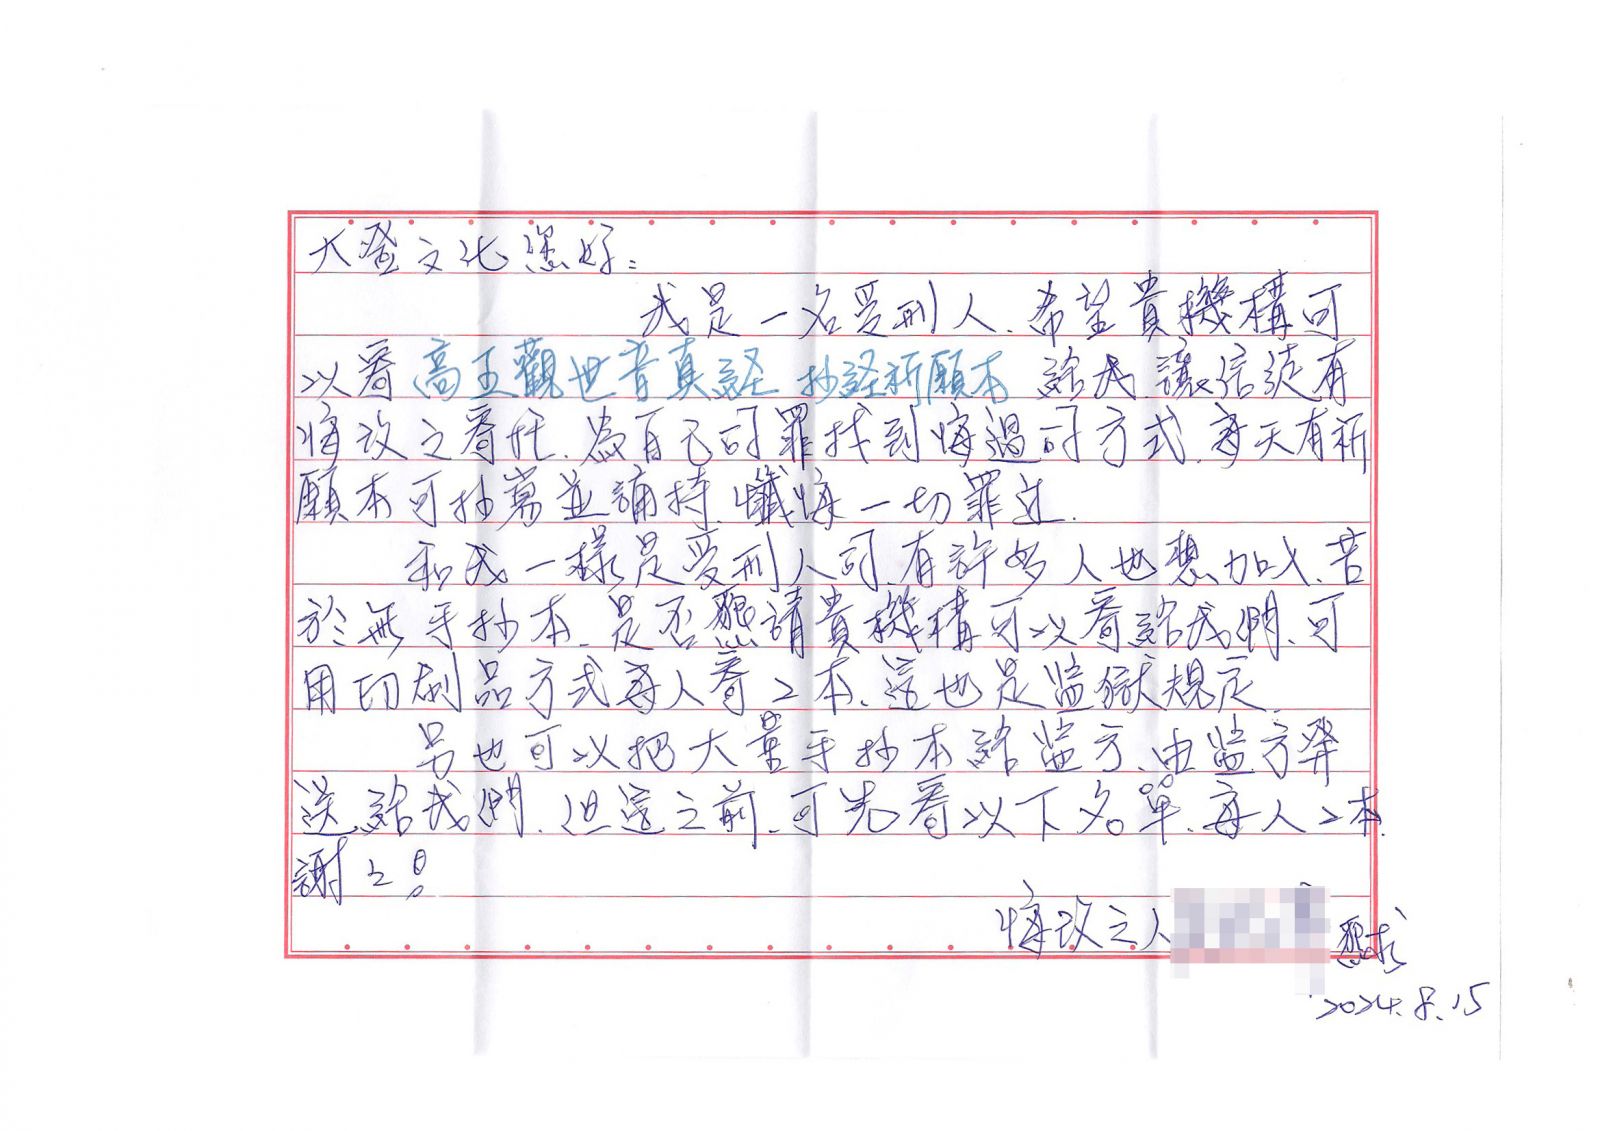 大燈文化您好：
我是一名受刑人、希望貴機構可
以寄高王觀世音真経 抄経祈願本 給我、讓信徒有
悔改之寄托、為自己的罪找到悔過的方式、每天有祈
願本可抄寫並誦持、懺悔一切罪过.
和我一樣是受刑人的、有許多人也想加入、苦
於無手抄本、是否懇請貴機構可以寄給我們、可
用印刷品方式每人寄2本、這也是監獄規定.
另也可以把大量手抄本給監方、由監方發
送給我們、但這之前、可先寄以下名單、每人2本.
謝々!
悔改之人 懇求
2024.8.15